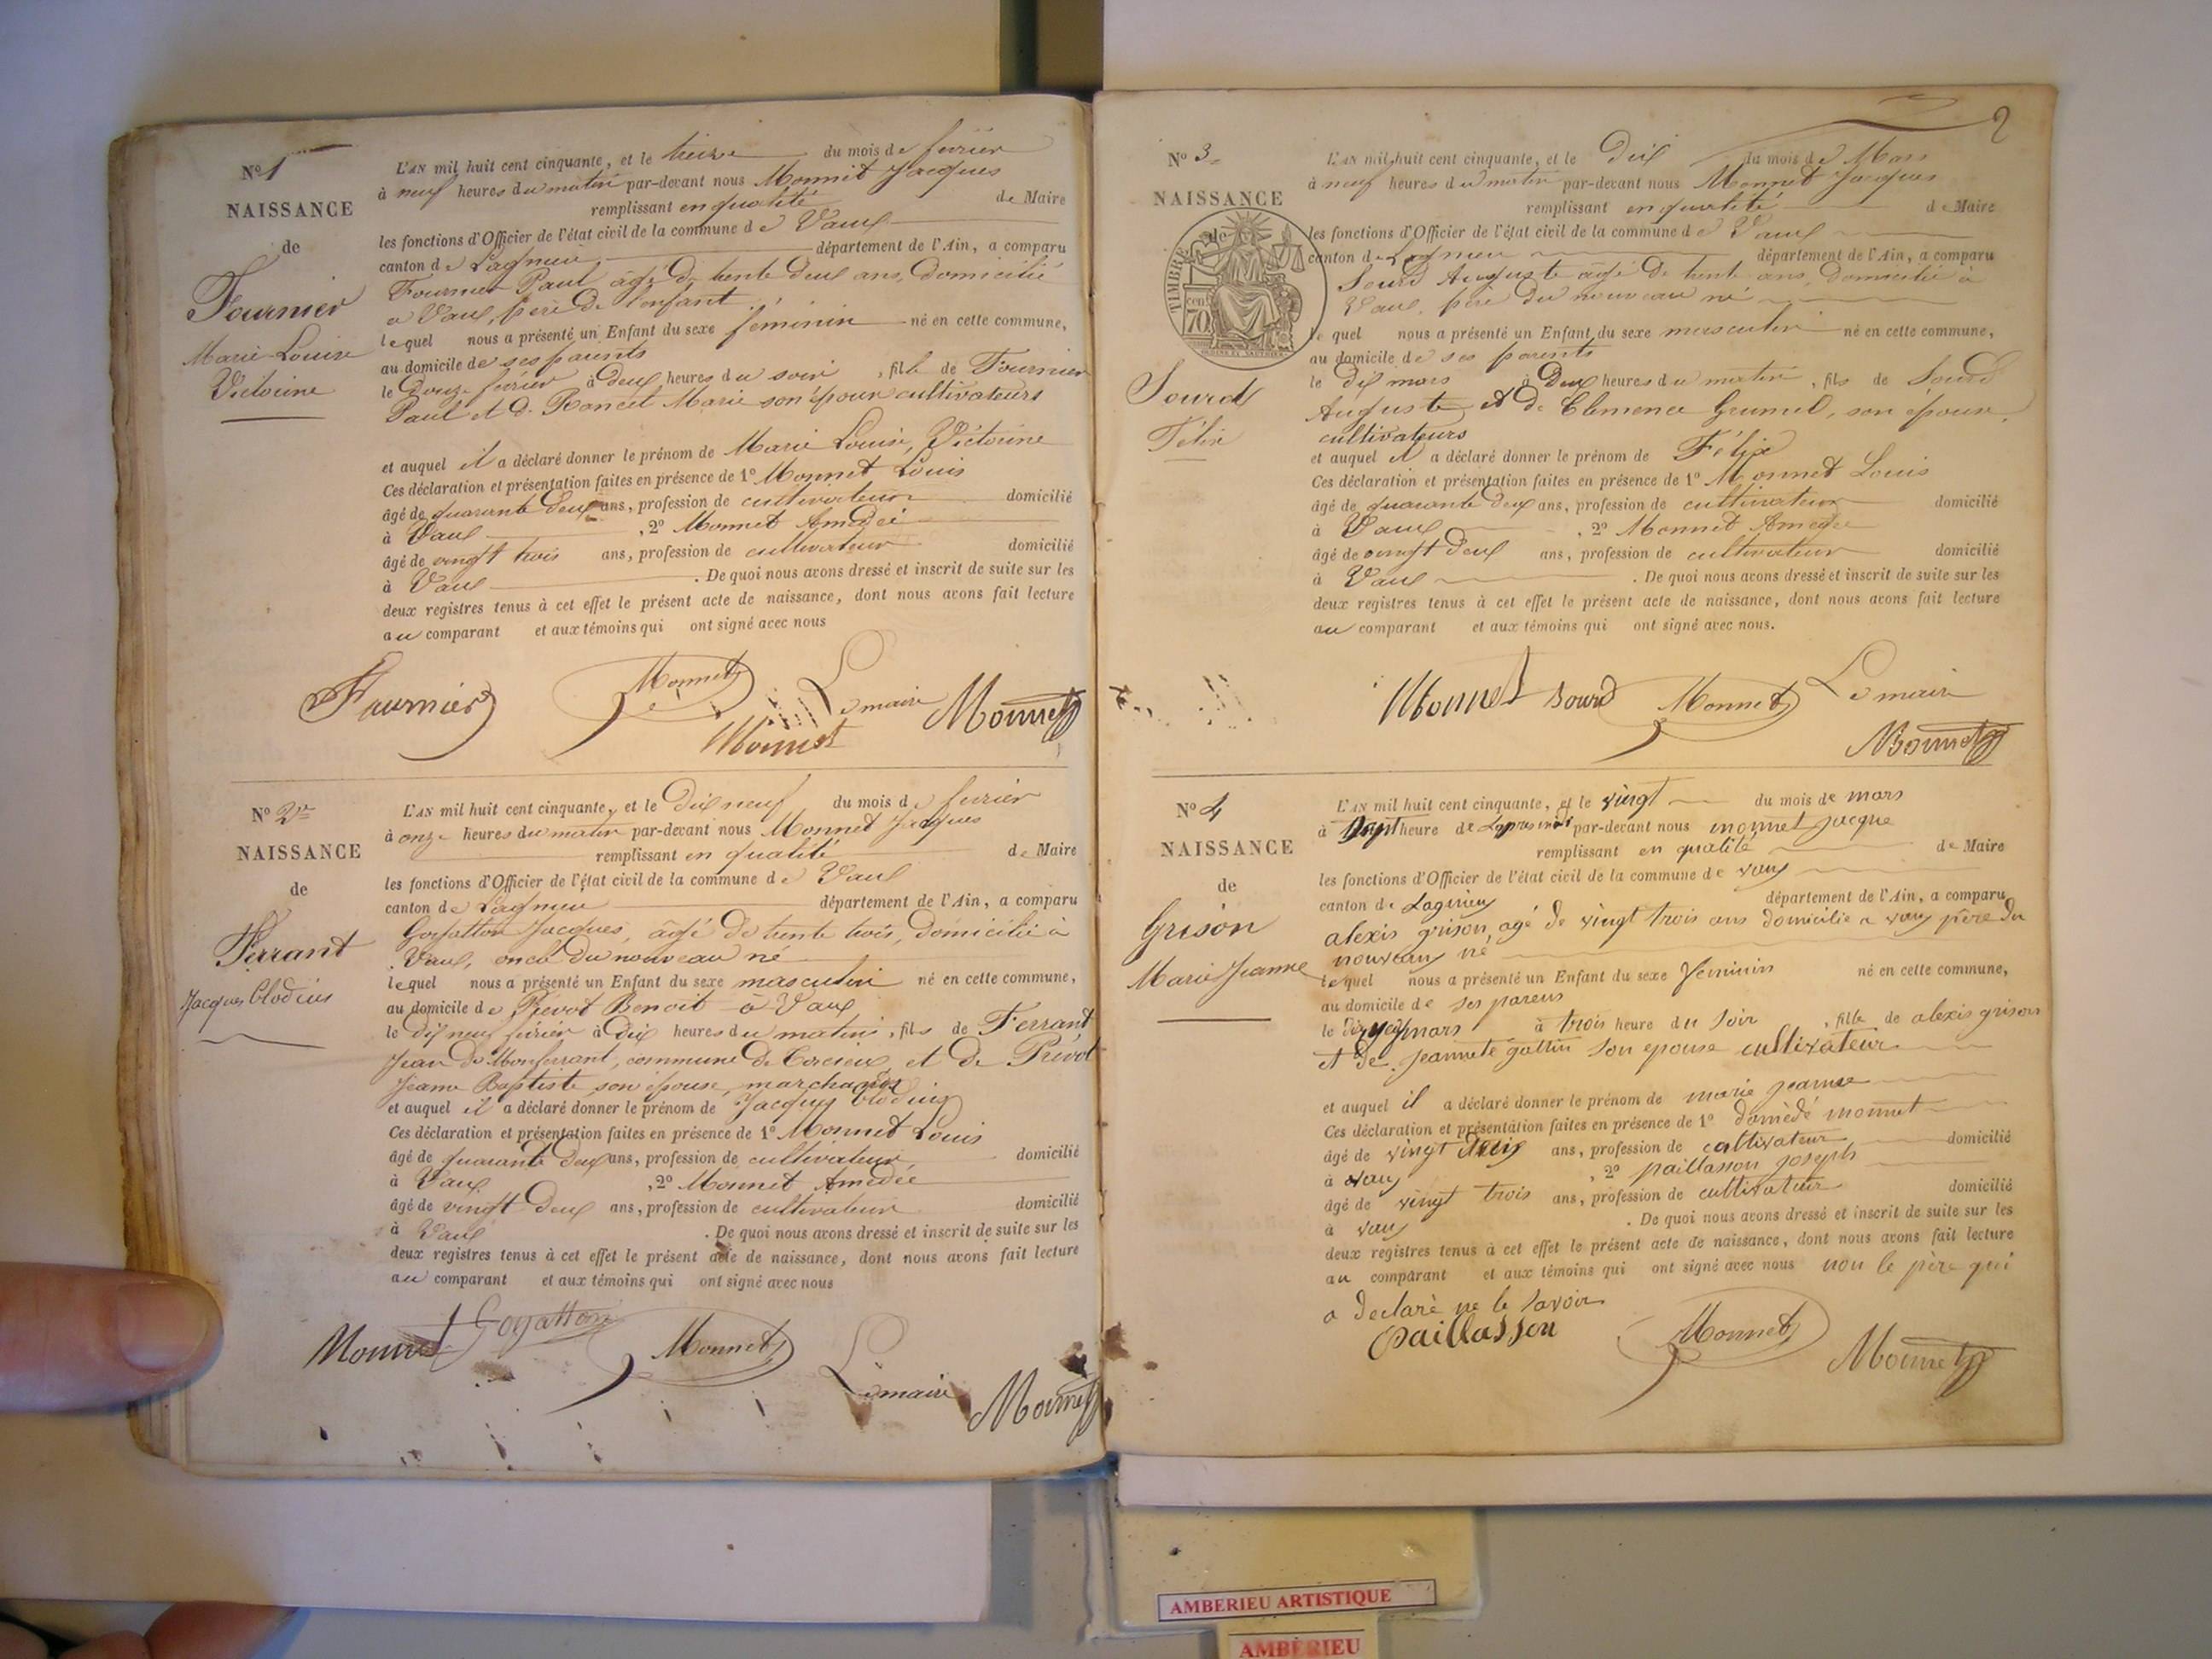 N° 1
NAISSANCE
de
Fournier
Marie-Louise
Victorine
L'AN mil huit cent cinquante, et le treize du mois de fevrier
à neuf heures du matin par-devant nous Monnet Jacques
remplissant en qualité de Maire
les fonctions d'Officier de l'état civil de la commune de Vaux
canton de Lagnieu département de l'Ain, a comparu
Fournier Paul âgé de trente deux ans, domicilié
à Vaux, père de l'enfant
lequel nous a présenté un Enfant du sexe féminin né en cette commune,
au domicile de ses parents
le Douze fevrier à deux heures du soir, fille de Fournier
Paul et de Rancet Marie son épouse cultivateurs
et auquel il a déclaré donner le prénom de Marie Louise, Victorine
Ces déclaration et présentation faites en présence de 1° Monnet Louis
âgé de quarante deux ans, profession de cultivateur domicilié
à Vaux, 2° Monnet Amedée
âgé de vingt trois ans, profession de cultivateur domicilié
à Vaux. De quoi nous avons dressé et inscrit de suite sur les
deux registres tenus à cet effet le présent acte de naissance, dont nous avons fait lecture
au comparant et aux témoins qui ont signé avec nous
Fournier Monnet Le maire Monnet
Monnet
N° 2
NAISSANCE
de
Ferrant
Jacques Clodius
L'AN mil huit cent cinquante, et le Dix neuf du mois de fevrier
à onze heures du matin par-devant nous Monnet Jacques
remplissant en qualité de Maire
les fonctions d'Officier de l'état civil de la commune de Vaux
canton de Lagnieu département de l'Ain, a comparu
Goyatton Jacques, âgé de trente trois, domicilié à
Vaux, oncle du nouveau né
lequel nous a présenté un Enfant du sexe masculin né en cette commune,
au domicile de Prévot Benoit à Vaux
le dix neuf fevrier à Dix heures du matin, fils de Ferrant
Jean de Monferrant, commune de et de Prévot
Jeanne Baptiste son épouse, marchands
et auquel il a déclaré donner le prénom de Jacques Clodius
Ces déclaration et présentation faites en présence de 1° Monnet Louis
âgé de quarante deux ans, profession de cultivateur domicilié
à Vaux, 2° Monnet Amédée
âgé de vingt deux ans, profession de cultivateur domicilié
à Vaux. De quoi nous avons dressé et inscrit de suite sur les
deux registres tenus à cet effet le présent acte de naissance, dont nous avons fait lecture
au comparant et aux témoins qui ont signé avec nous
Monnet Goyatton Monnet Le maire Monnet
2
N° 3
NAISSANCE
de
TIMBRE
cen 70
Sourd
Félix
L'AN mil huit cent cinquante, et le Dix du mois de Mars
à neuf heures du matin par-devant nous Monnet Jacques
remplissant en qualité de Maire
les fonctions d'Officier de l'état civil de la commune de Vaux
canton de Lagnieu département de l'Ain, a comparu
Sourd Auguste âgé de trente ans, domicilié à
Vaux, père du nouveau né
le quel nous a présenté un Enfant du sexe masculin né en cette commune,
au domicile de ses parents
le dix mars à Deux heures du matin, fils de Sourd
Auguste et de Clemence Grumel, son épouse,
cultivateurs
et auquel il a déclaré donner le prénom de Félix
Ces déclaration et présentation faites en présence de 1° Monnet Louis
âgé de quarante deux ans, profession de cultivateur domicilié
à Vaux, 2° Monnet Amedée
âgé de vingt deux ans, profession de cultivateur domicilié
à Vaux. De quoi nous avons dressé et inscrit de suite sur les
deux registres tenus à cet effet le présent acte de naissance, dont nous avons fait lecture
au comparant et aux témoins qui ont signé avec nous.
Monnet Sourd Monnet Le maire
Monnet
N° 4
NAISSANCE
de
Grison
Marie Jeanne
L'AN mil huit cent cinquante, et le vingt du mois de mars
à heure de par-devant nous monnet jacque
remplissant en qualité de Maire
les fonctions d'Officier de l'état civil de la commune de vaux
canton de Lagnieu département de l'Ain, a comparu
alexis grison agé de vingt trois ans domicilie a vaux père du
nouveau né
lequel nous a présenté un Enfant du sexe feminin né en cette commune,
au domicile de ses parens
le mars à trois heure du soir, fille de alexis grison
et de jeannete gottin son epouse cultivateur
et auquel il a déclaré donner le prénom de marie jeanne
Ces déclaration et présentation faites en présence de 1° monnet
âgé de vingt ans, profession de cultivateur domicilié
à vaux, 2° paillasson joseph
âgé de vingt trois ans, profession de cultivateur domicilié
à vaux. De quoi nous avons dressé et inscrit de suite sur les
deux registres tenus à cet effet le présent acte de naissance, dont nous avons fait lecture
au comparant et aux témoins qui ont signé avec nous non le père qui
a declaré ne le savoir
Paillasson Monnet Monnet
AMBERIEU ARTISTIQUE
AMBERIEU